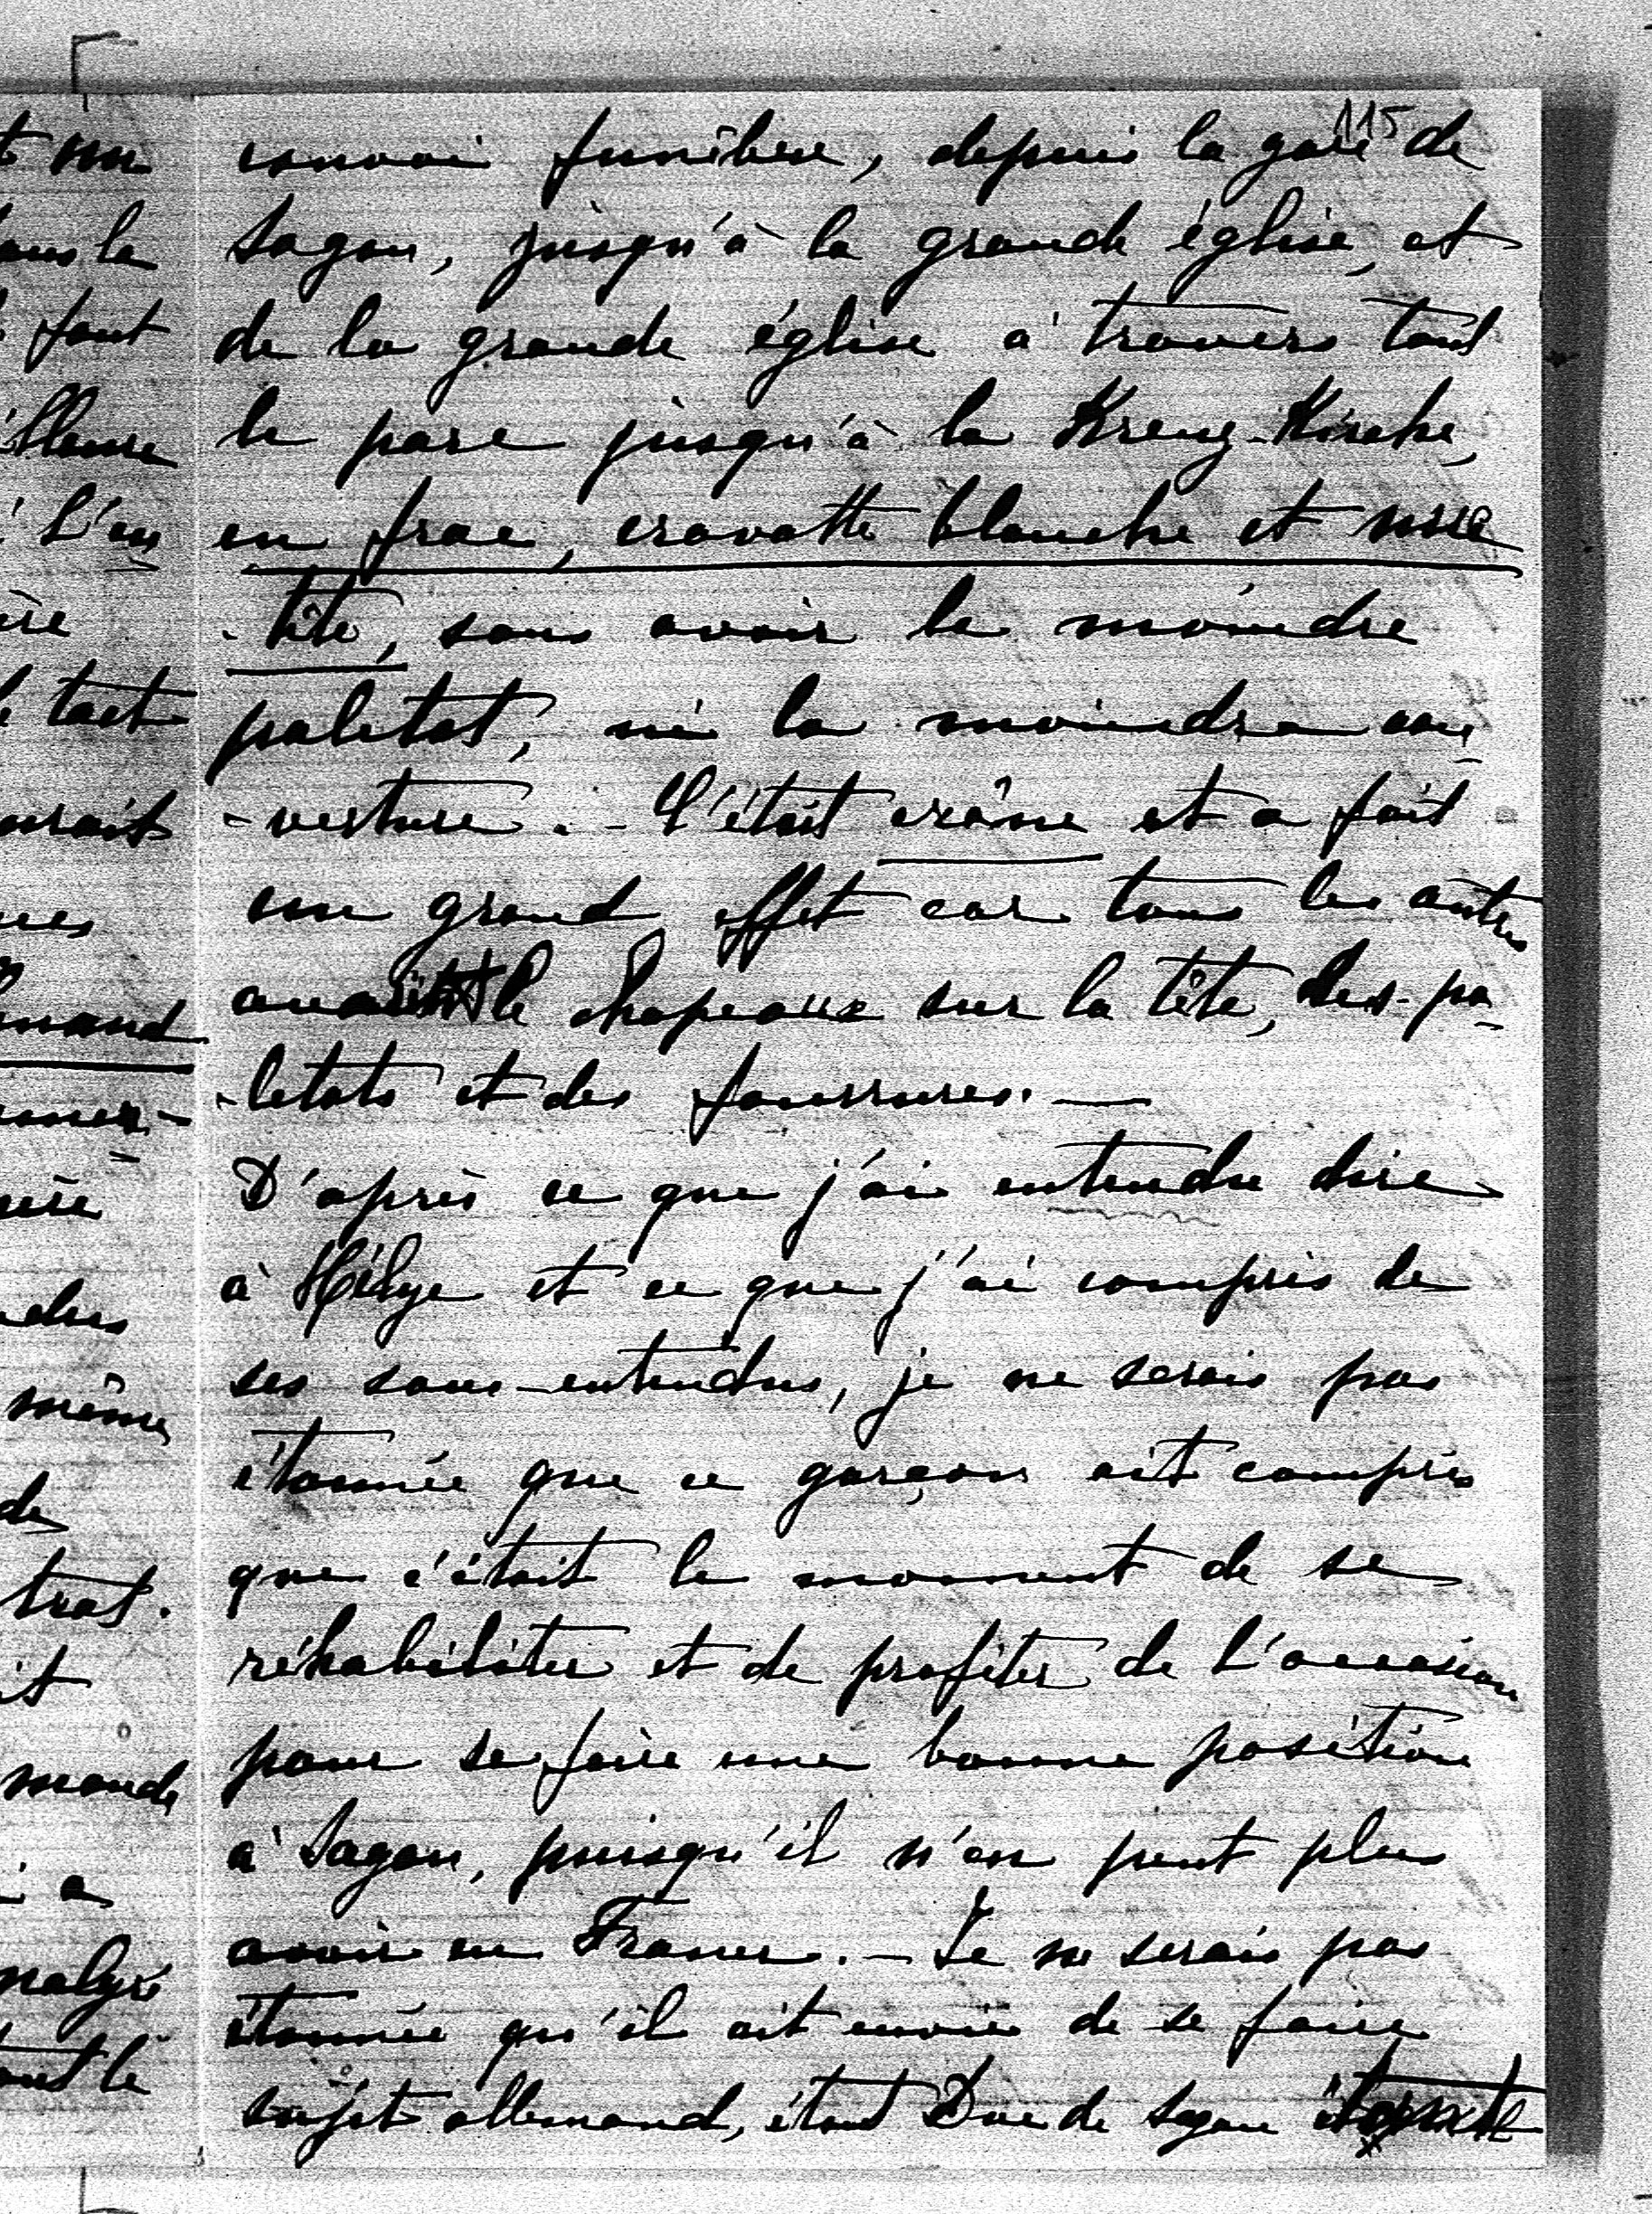 115
convoi funèbre, depuis la gare de
Sagan, jusqu'à la grande église, et
de la grande église à travers tout
le parc jusqu'à la Kreuz-Kirche,
en frac, cravatte blanche et nue
-tête, sans avoir le moindre
paletot, ni la moindre cou-
-verture. - C'était crâne et a fait
un grand effet car tous les autres
avaient le chapeaux sur la tête, des pa-
-letots et des fourrures. —
D'après ce que j'ai entendu dire
à Hélye et ce que j'ai compris de
ses sous-entendus, je ne serais pas
étonnée que ce garçon ait compris
que c'était le moment de se
réhabiliter et de profiter de l'occasion
pour se faire une bonne position
à Sagan, puisqu'il n'en peut plus
avoir en France. - Je ne serais pas
étonnée qu'il ait envie de se faire
sujet allemand, étant Duc de Sagan